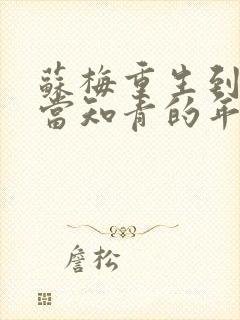 蘇梅重生到
當知青的年
詹松